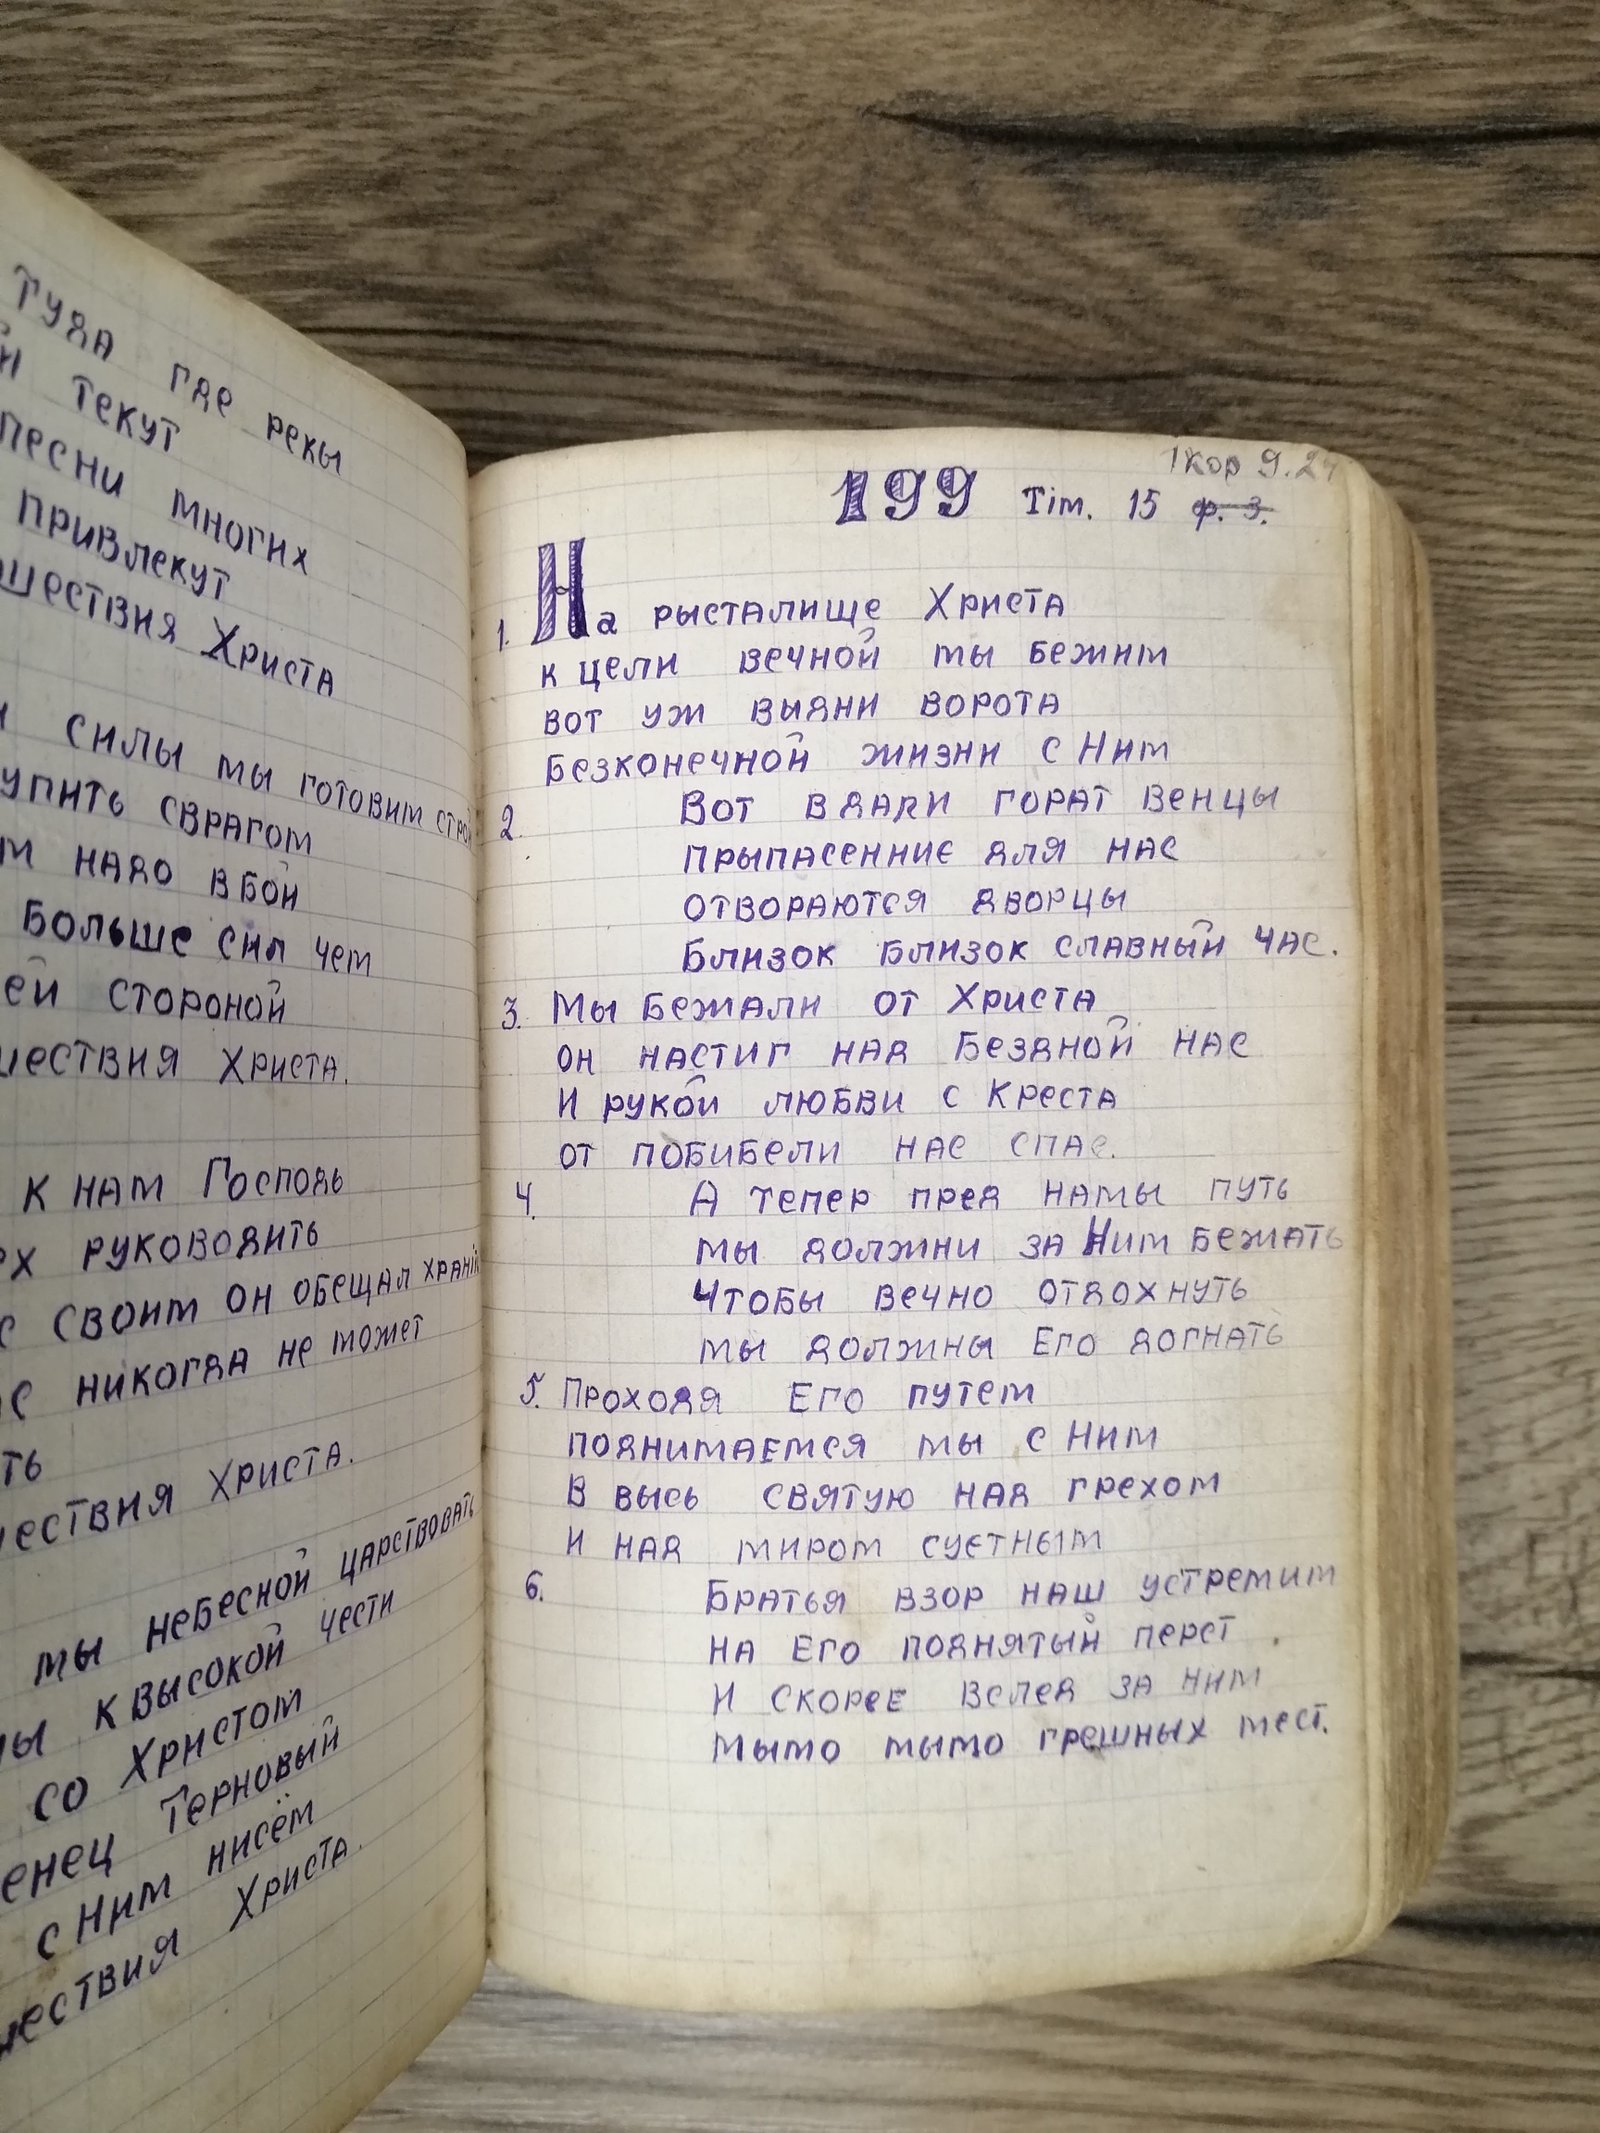 туда где рекы
текут
песни многих
привлекут
шествия Христа
силы мы готовим строй
упить сврагом
м надо вбой
больше сил чем
ей стороной
шествия Христа.
к нам Господь
рх руководить
с своим он обещал храніт
с никогда не может
ть
шествия Христа.
мы небесной царствовать
ны квысокой чести
со Христом
енец Терновый
с Ним нисём
шествия Христа.
1 кор 9.24
199 Тіт. 15 ф. 3.
1. На рысталище Христа
к цели вечной мы бежим
вот уж выдни ворота
Безконечной жизни с Ним
2. Вот вдали горат венцы
прыпасенние для нас
отвораются дворцы
Близок близок славный час.
3. Мы бежали от Христа
он настиг над бездной нас
И рукой любви с Креста
от побибели нас спас.
4. А тепер пред намы путь
мы должни за Ним бежать
Чтобы вечно отдохнуть
мы должны Его догнать
5. Проходя Его путем
поднимаемся мы с Ним
В высь святую над грехом
И над миром суетным
6. Братья взор наш устремим
на Его поднятый перст.
И скорее вслед за ним
мымо мымо грешных мест.